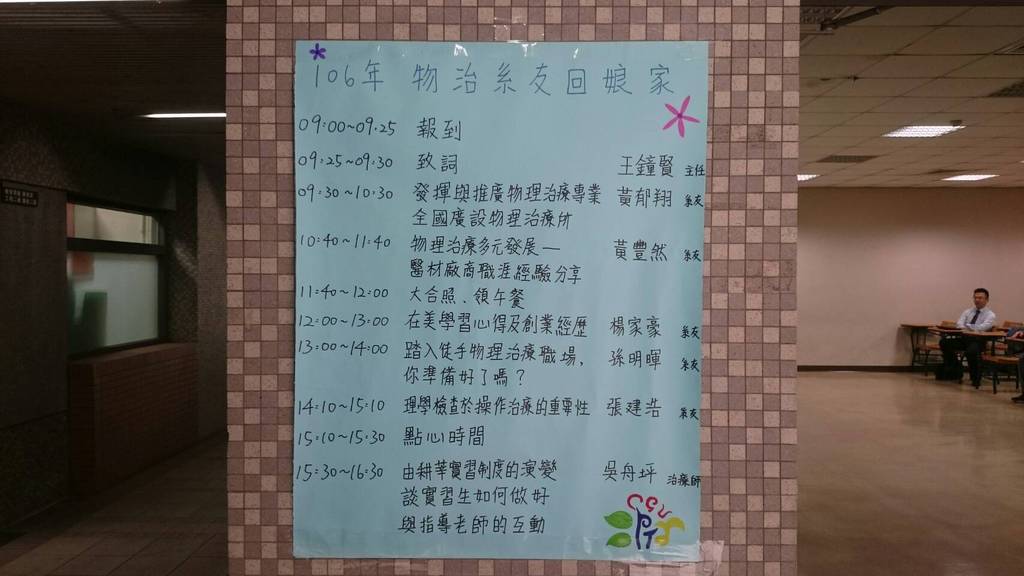 106年 物治系友回娘家
09:00~09:25 報到
09:25~09:30 致詞 王鐘賢 主任
09:30~10:30 發揮與推廣物理治療專業 黃郁翔 系友
全國廣設物理治療所
10:40~11:40 物理治療多元發展— 黃豐然 系友
醫材廠商職涯經驗分享
11:40~12:00 大合照、領午餐
12:00~13:00 在美學習心得及創業經歷 楊家豪 系友
13:00~14:00 踏入徒手物理治療職場, 孫明暉 系友
你準備好了嗎?
14:10~15:10 理學檢查於操作治療的重要性 張建浩 系友
15:10~15:30 點心時間
15:30~16:30 由耕莘實習制度的演變 吳舟坪 治療師
談實習生如何做好
與指導老師的互動